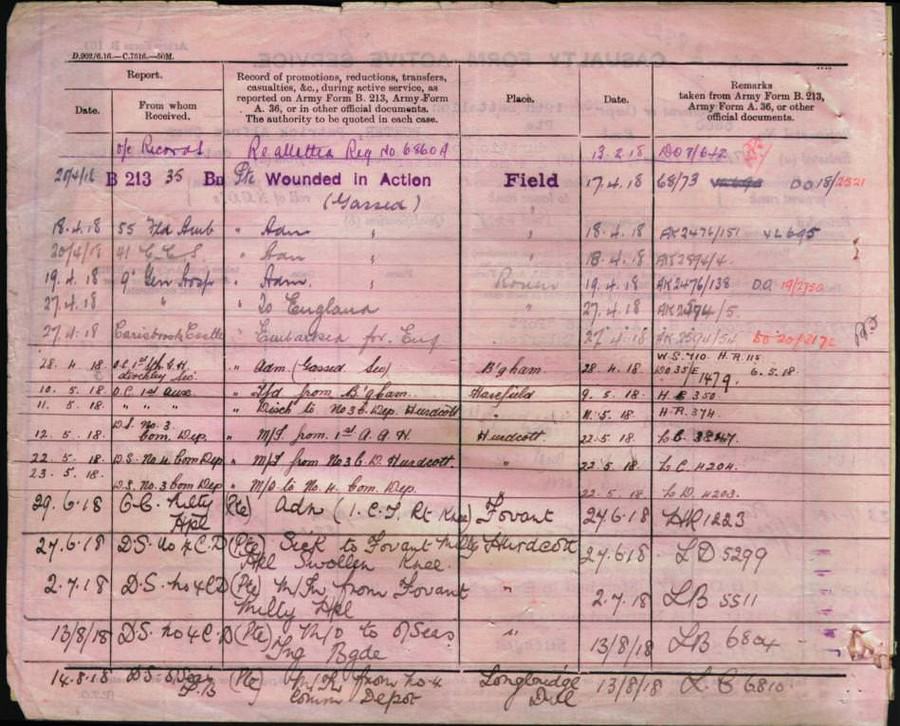 D.902/6.16.—C.7616.—50M.
Report.
Record of promotions, reductions, transfers, casualties, &c., during active service, as reported on Army Form B. 213, Army Form A. 36, or in other official documents. The authority to be quoted in each case.
Place.
Date.
Remarks taken from Army Form B. 213, Army Form A. 36, or other official documents.
Date.
From whom Received.
o/c Records Reallotted Reg No. 6860A 13.2.18
20/4/18 B 213 35 Bn Pte Wounded in Action Field 17.4.18 68/73 DO 18/2521
(Gassed)
18.4.18 55 Fld Amb " Adm " 18.4.18 AK2476/151
20/4/18 41 C.C.S. " Adm " 18.4.18
19.4.18 9" Gen Hosp " Adm. Rouen 19.4.18 AK2476/138 DO 19/2750
27.4.18 " " To England " 27.4.18
27.4.18 Carisbrook Castle " Embarked for Eng 27.4.18
W.S. 710. H.R. 115
28.4.18 " Adm (Gassed Sev) B'gham 28.4.18 DO 35/E/1479. 6.5.18
10.5.18 O.C. 1st Aux " Tfd from B'gham. Harefield 9.5.18 H.R. 350
11.5.18 " " " " Disch to No 3 C. Dep. Hurdcott " 11.5.18 H.R. 374
12.5.18 D.S. No. 3 Com. Dep. " M/I from 1st A.A.H. Hurdcott 22.5.18
22.5.18 D.S. No. 4 Com Dep " M/I from No 3 C.D. Hurdcott. " 22.5.18 L.C. 4204.
23.5.18
D.S. No. 3 Com Dep " M/O to No. 4. Com. Dep. 22.5.18 4203.
29.6.18 O.C. Milty Hpl (Pte) Adm (I.C.T. Rt Knee) Fovant 27.6.18 HR 1223
27.6.18 D.S. No 4 C.D (Pte) Sick to Fovant Milty Hurdcott 27.6.18 LD 5299
Hpl Swollen Knee.
2.7.18 D.S. No 4 CD (Pte) M/In from Fovant " 2.7.18 LB 5511
Milty Hpl
13/8/18 D.S. No 4 C.D (Pte) M/O to O/Seas " 13/8/18 LB 6804
Tng Bgde
14.8.18 (Pte) M/In from No 4 Longbridge 13/8/18 6810
Comm Depot Dvll